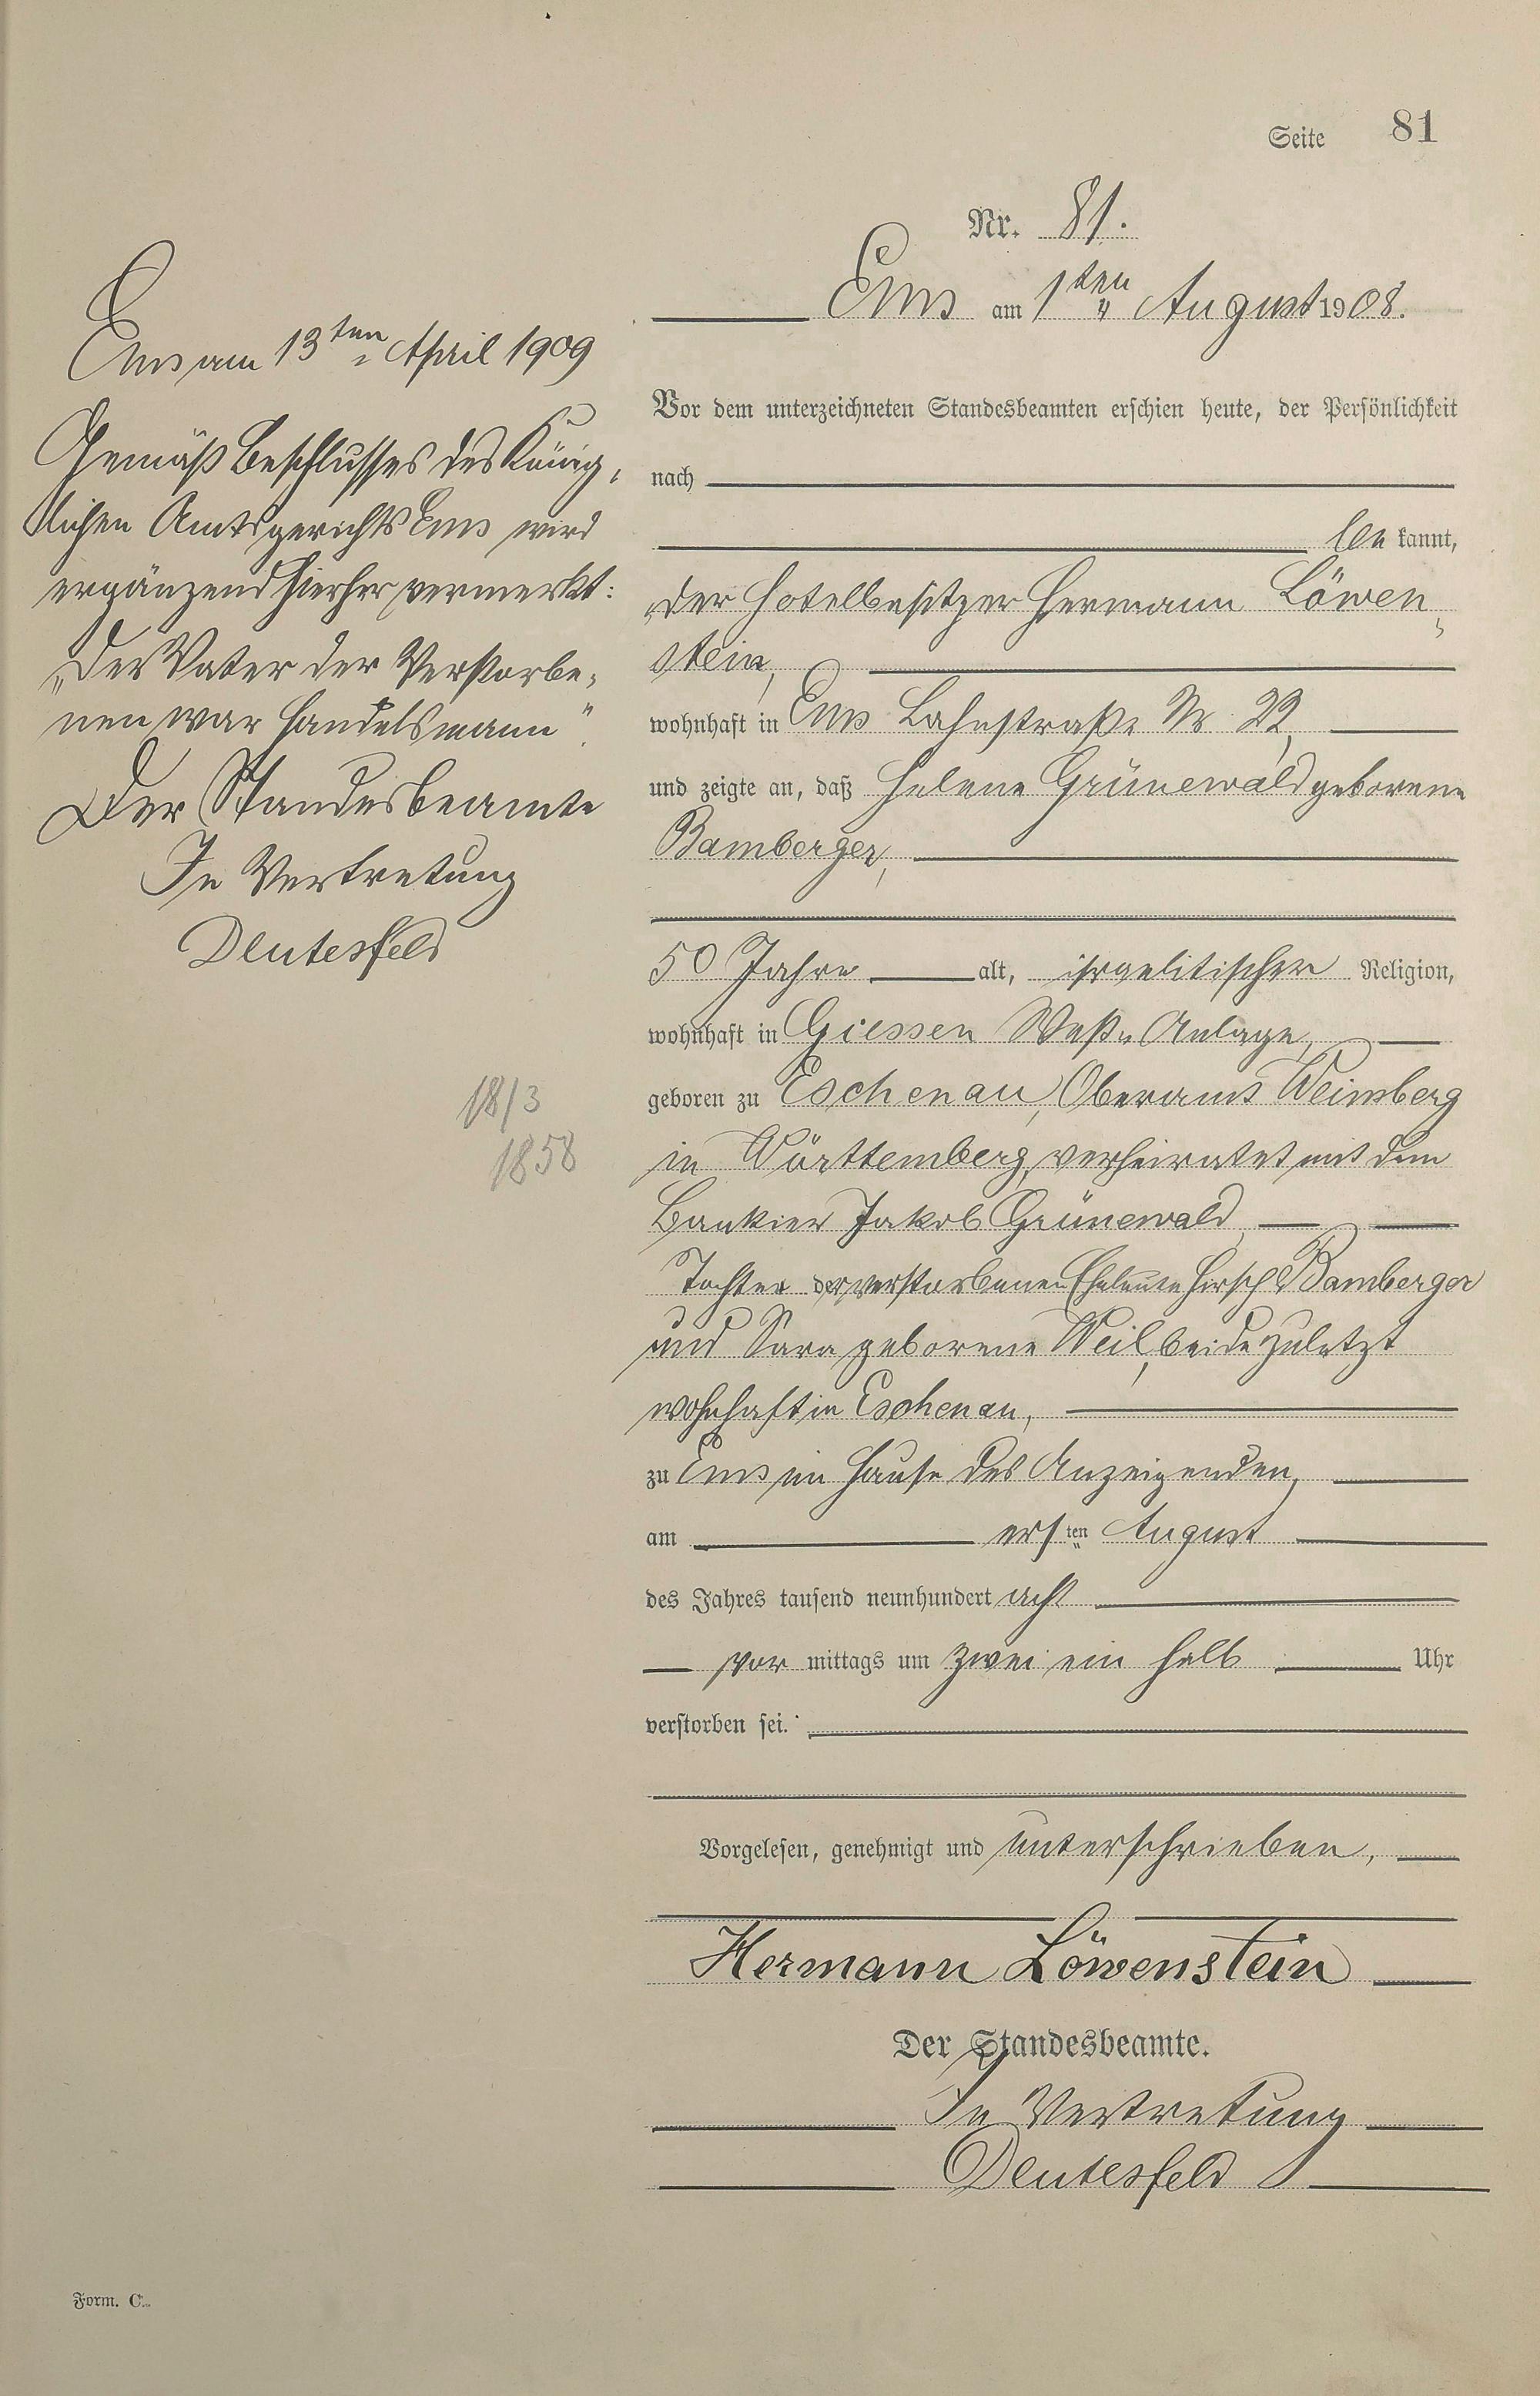 Seite 81
Nr. 81.
Ems am 1ten August 1908.
Vor dem unterzeichneten Standesbeamten erschien heute, der Persönlichkeit
nach
bekannt,
der Hotelbesitzer Hermann Löwen-
stein,
wohnhaft in Ems Lahnstraße Nr 22,
und zeigte an, daß Helene Grünewald geborene
Bamberger,
50 Jahre alt, israelitischer Religion,
wohnhaft in Giessen West-Anlage,
geboren zu Eschenau, Oberamt Weinsberg
in Württemberg, verheiratet mit dem
Bankier Jakob Grünewald,
Tochter der verstorbenen Eheleute Hirsch Bamberger
und Sara geborene Weil, beide zuletzt
wohnhaft in Eschenau,
zu Ems im Hause des Anzeigenden,
am ersten August
des Jahres tausend neunhundert acht
vor mittags um zwei ein halb Uhr
verstorben sei.
Vorgelesen, genehmigt und unterschrieben,
Hermann Löwenstein
Der Standesbeamte.
In Vertretung
Deutesfeld
Ems am 13ten April 1909
Gemäß Beschlusses des König-
lichen Amtsgerichts Ems wird
ergänzend hierher vermerkt:
„Der Vater der Verstorbe-
nen war Handelsmann".
Der Standesbeamte
In Vertretung
Deutesfeld
18/3
1858
Form. C.